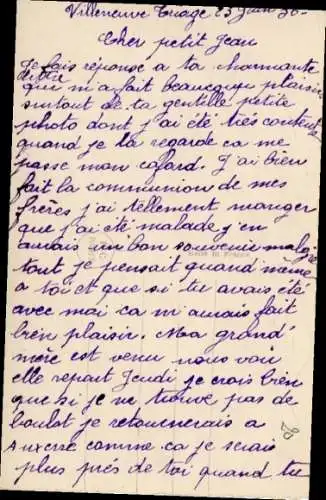 Villeneuve Triage 23 Juin 30-
Cher petit Jean
Je fais réponse a ta charmante
lettre
qui m'a fait beaucoup plaisir
surtout de ta gentille petite
photo dont j'ai été très contente
quand je la regarde ca me
passe mon cafard. J'ai bien
fait la communion de mes
frères j'ai tellement manger
que j'ai été malade j'en
aurais un bon souvenir malgré
tout je pensait quand même
a toi et que si tu avais été
avec moi ca m'aurais fait
bien plaisir. Ma grand'
mère est venu nous voir
elle repart Jeudi je crois bien
que si je ne trouve pas de
boulot je retournerais a
Auxerre comme ca je serais
plus près de toi quand tu